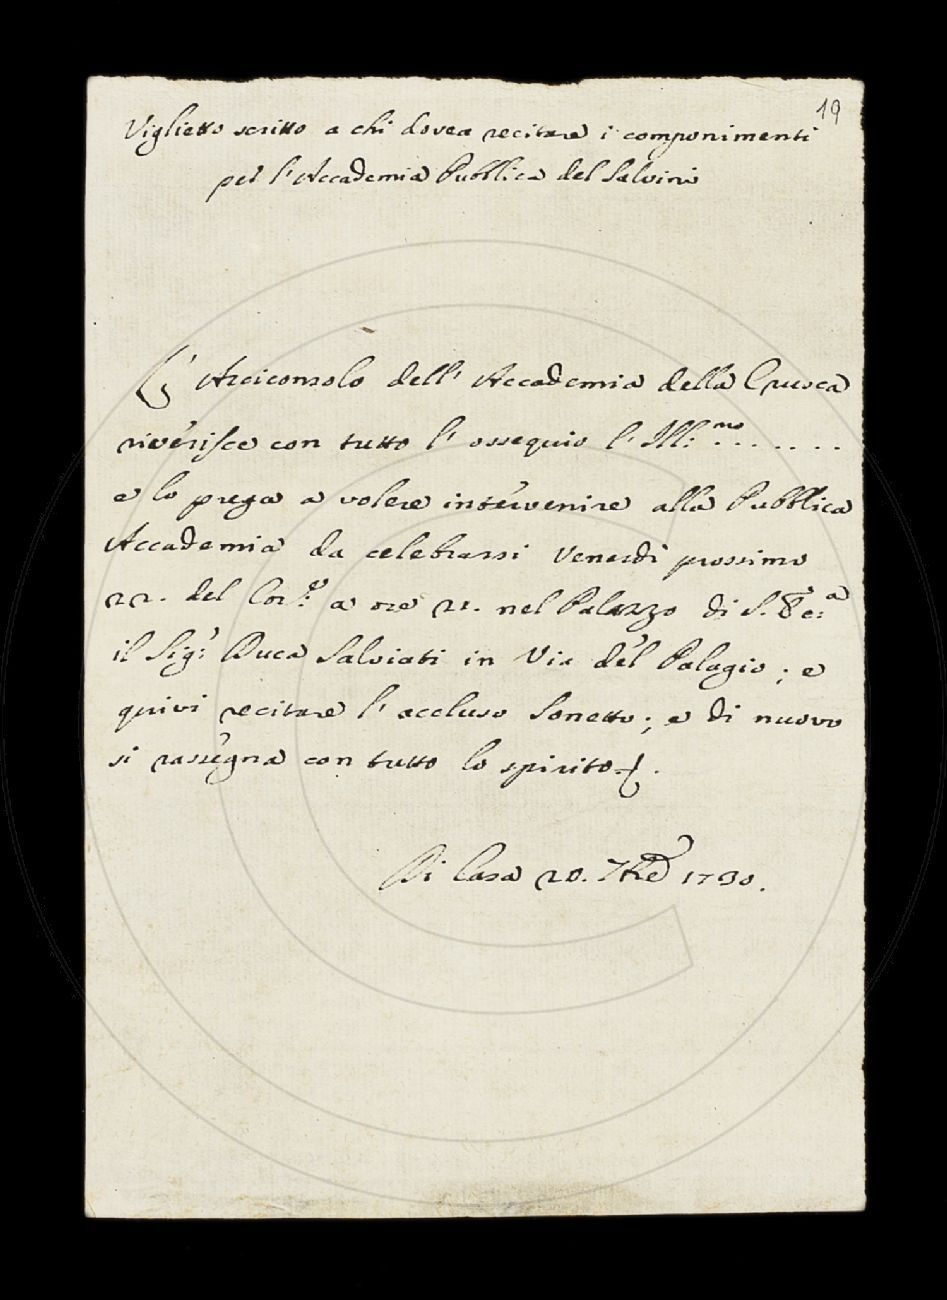 19
Viglietto scritto a chi dovea recitare i componimenti
per l'Accademia Pubblica del Salvini
L'Arciconsolo dell'Accademia della Crusca
riverisce con tutto l'ossequio l'Ill:mo .......
e lo prega a volere intervenire alla Pubblica
Accademia da celebrarsi Venerdì prossimo
22. del Cor:e a ore 21. nel Palazzo di S. E:a
il Sig: Duca Salviati in Via del Palagio; e
quivi recitare l'accluso Sonetto; e di nuovo
si rassegna con tutto lo spirito.
Di Casa 20. 7bre 1730.